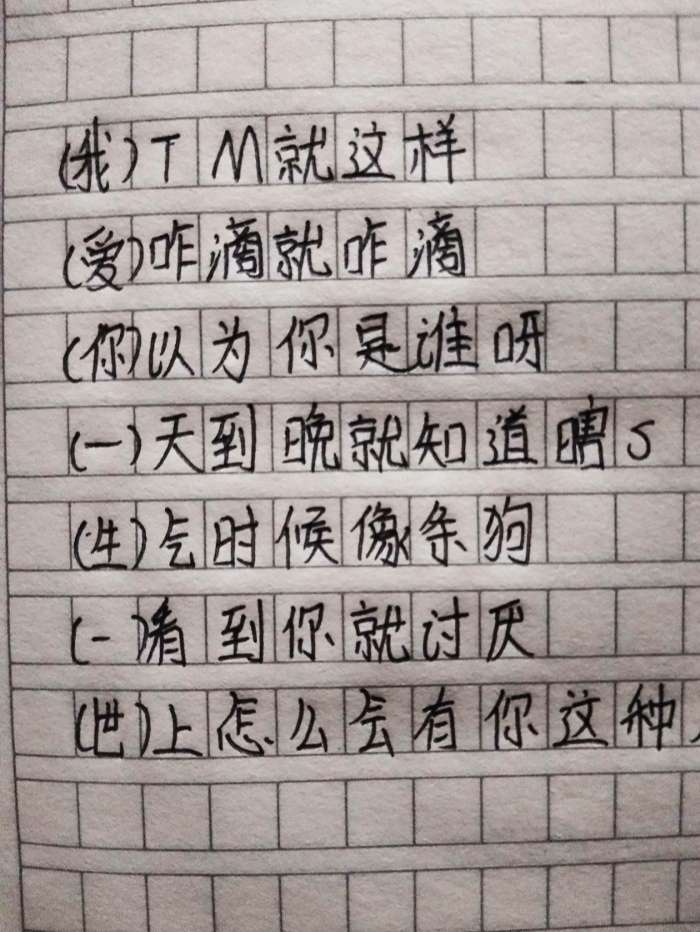 (我)TM就这样
(爱)咋滴就咋滴
(你)以为你是谁呀
(一)天到晚就知道瞎S
(生)气时候像条狗
(一)看到你就讨厌
(世)上怎么会有你这种